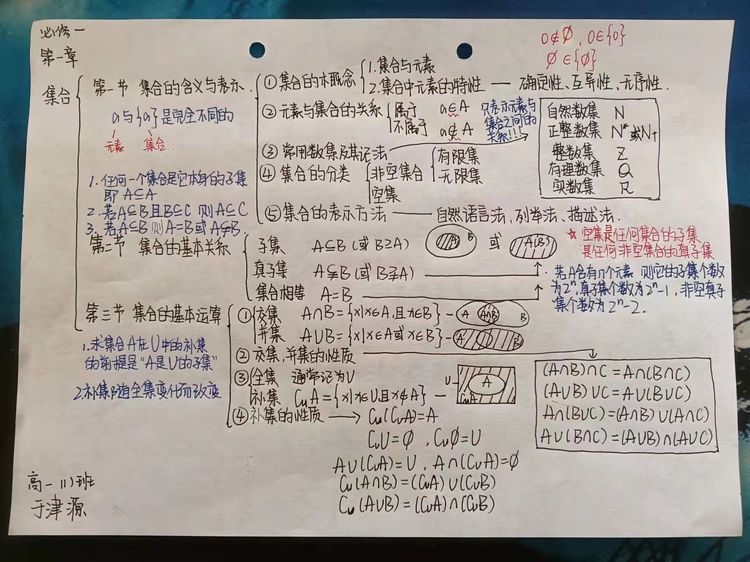 必修一
第一章
集合
第一节 集合的含义与表示
a与{a}是完全不同的
元素 集合
① 集合的概念
1. 集合与元素
2. 集合中元素的特性 — 确定性、互异性、无序性.
0∉∅, 0∈{0}
∅∈{∅}
② 元素与集合的关系
属于 a∈A
不属于 a∉A
只表示元素与
集合之间的
关系!!!
③ 常用数集及其记法
自然数集 N
正整数集 N* 或N+
整数集 Z
有理数集 Q
实数集 R
④ 集合的分类
非空集合
有限集
无限集
空集
⑤ 集合的表示方法 — 自然语言法, 列举法、描述法.
1. 任何一个集合是它本身的子集
即 A⊆A
2. 若A⊆B且B⊆C 则A⊆C
3. 若A⊆B 则A=B或A⫋B.
第二节 集合的基本关系
子集 A⊆B (或 B⊇A) A B 或 A(B)
真子集 A⫋B (或 B⫌A)
集合相等 A=B
★ 空集是任何集合的子集
是任何非空集合的真子集
若A含有n个元素 则它的子集个数
为2ⁿ,真子集个数为2ⁿ-1, 非空真子
集个数为2ⁿ-2.
第三节 集合的基本运算
1.求集合A在U中的补集
的前提是“A是U的子集”
2.补集随全集变化而改变
① 交集 A∩B={x|x∈A,且x∈B} A A∩B B
并集 A∪B={x|x∈A或x∈B} A B
② 交集,并集的性质
③ 全集 通常记为U
补集 ∁uA={x|x∈U且x∉A} U A ∁uA
④ 补集的性质 → ∁u(∁uA)=A
∁uU=∅, ∁u∅=U
A∪(∁uA)=U, A∩(∁uA)=∅
∁u(A∩B)=(∁uA)∪(∁uB)
∁u(A∪B)=(∁uA)∩(∁uB)
(A∩B)∩C=A∩(B∩C)
(A∪B)∪C=A∪(B∪C)
A∩(B∪C)=(A∩B)∪(A∩C)
A∪(B∩C)=(A∪B)∩(A∪C)
高一(1)班
于津源